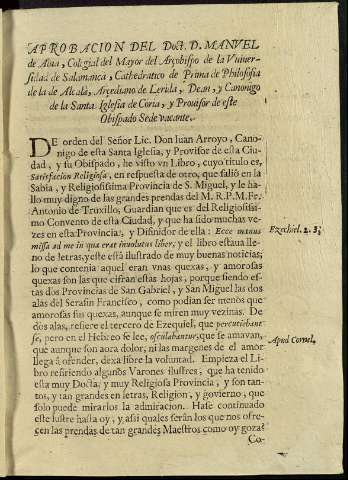 APROBACION DEL Doct. D. MANVEL
de Alva, Colegial del Mayor del Arçobispo de la Vniver-
sidad de Salamanca, Cathedratico de Prima de Philosofia
de la de Alcalà, Arçediano de Lerida, Dean, y Canonigo
de la Santa Iglesia de Coria, y Provisor de este
Obispado Sede vacante.
DE orden del Señor Lic. Don Iuan Arroyo, Cano-
nigo de esta Santa Iglesia, y Provisor de esta Ciu-
dad, y su Obispado, he visto vn Libro, cuyo titulo es,
Satisfacion Religiosa, en respuesta de otro, que saliò en la
Sabia, y Religiosissima Provincia de S. Miguel, y le ha-
llo muy digno de las grandes prendas del M.R.P.M.Fr.
Antonio de Truxillo, Guardian que es del Religiosissi-
mo Convento de esta Ciudad, y que ha sido muchas ve-
zes en esta Provincia, y Difinidor de ella: Ecce manus
missa ad me in qua erat involutus liber, y el libro estava lle-
no de letras, y este està ilustrado de muy buenas noticias;
lo que contenia aquel eran vnas quexas, y amorosas
quexas son las que cifran estas hojas, porque siendo es-
tas dos Provincias de San Gabriel, y San Miguel las dos
alas del Serafin Francisco, como podian ser menos que
amorosas sus quexas, aunque se miren muy vezinas. De
dos alas, refiere el tercero de Ezequiel, que percutieban-
se, pero en el Hebreo se lee, osculabantur, que se amavan,
que aunque son aora dolor, ni las margenes de el amor
llega à ofender, dexa libre la voluntad. Empieza el Li-
bro refiriendo algunos Varones ilustres, que ha tenido
esta muy Docta, y muy Religiosa Provincia, y son tan-
tos, y tan grandes en letras, Religion, y govierno, que
solo puede mirarlos la admiracion. Hase continuado
este lustre hasta oy, y assi quales seràn los que nos ofre-
cen las prendas de tan grandes Maestros como oy goza?
Co-
Ezechiel. 2. & 3.
Apud Cornel.